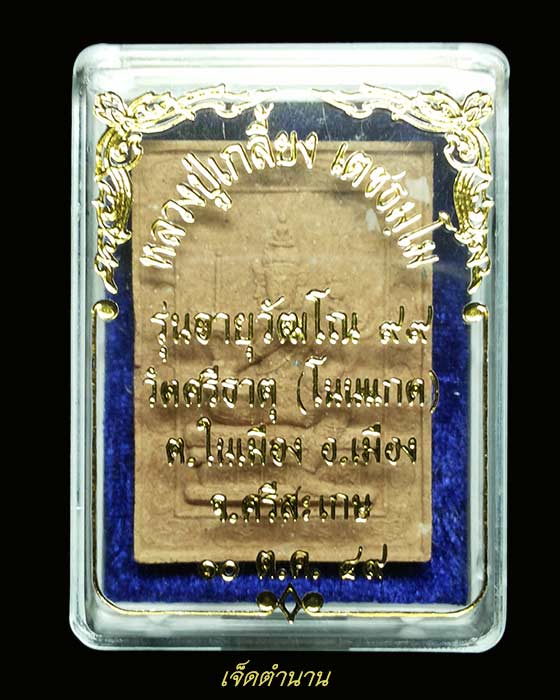 หลวงปู่เกลี้ยง เตชธมฺโม
รุ่นอายุวัฒโณ ๙๙
วัดศรีธาตุ (โนนแกด)
ต.ในเมือง อ.เมือง
จ.ศรีสะเกษ
๑๐ ต.ค. ๔๙
เจ็ดตำนาน